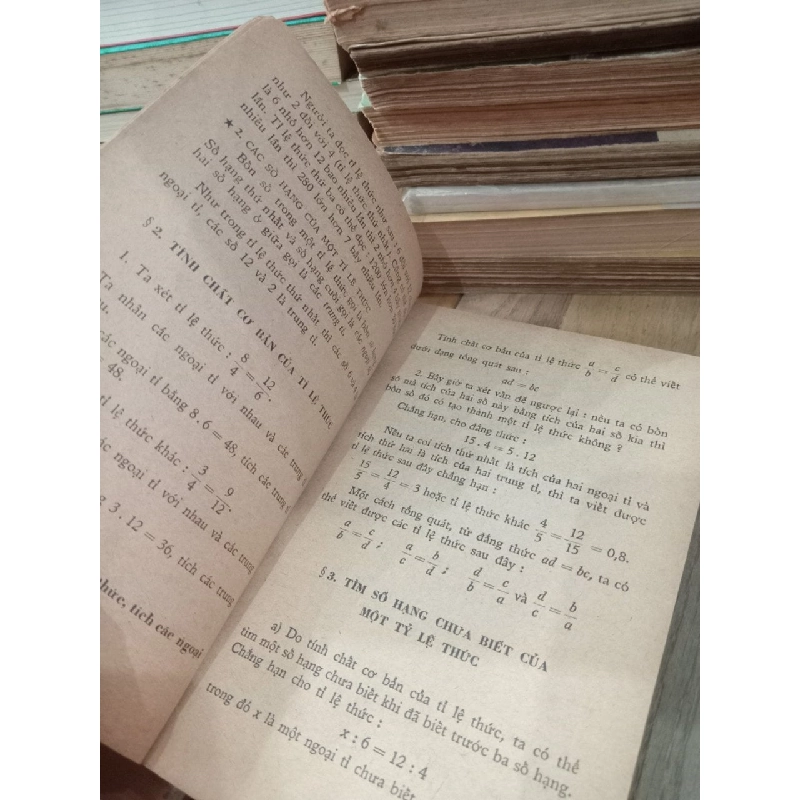 Người ta đọc tỉ lệ thức như sau : 6 đối với
như 2 đối với 4 (tỉ lệ thức thứ nhất),
là 6 nhỏ hơn 12 bao nhiêu lần thì 2 nhỏ hơn 4
lần. Tỉ lệ thức thứ ba có thể đọc : 1200 lớn hơn
nhiêu lần thì 280 lớn hơn 7 bấy nhiêu lần.
★ 2. CÁC SỐ HẠNG CỦA MỘT TỈ LỆ THỨC
Bốn số trong một tỉ lệ thức gọi là bốn số
Số hạng thứ nhất và số hạng cuối gọi là các ngoại
hai số hạng ở giữa gọi là các trung tỉ.
Như trong tỉ lệ thức thứ nhất thì các số 6 và
ngoại tỉ, các số 12 và 2 là trung tỉ.
§ 2. TÍNH CHẤT CƠ BẢN CỦA TỈ LỆ THỨC
1. Ta xét tỉ lệ thức : 8/4 = 12/6.
Ta nhân các ngoại tỉ với nhau và các trung tỉ
các ngoại tỉ bằng 8 . 6 = 48, tích các trung tỉ
= 48.
tỉ lệ thức khác : 3/4 = 9/12.
các ngoại tỉ với nhau và các trung
g 3 . 12 = 36, tích các trung
thức, tích các ngoại
Tính chất cơ bản của tỉ lệ thức a/b = c/d có thể viết
dưới dạng tổng quát sau :
ad = bc
2. Bây giờ ta xét vấn đề ngược lại : nếu ta có bốn
số mà tích của hai số này bằng tích của hai số kia thì
bốn số đó có tạo thành một tỉ lệ thức không ?
Chẳng hạn, cho đẳng thức :
15 . 4 = 5 . 12
Nếu ta coi tích thứ nhất là tích của hai ngoại tỉ và
tích thứ hai là tích của hai trung tỉ, thì ta viết được
tỉ lệ thức sau đây chẳng hạn :
15/5 = 12/4 = 3 hoặc tỉ lệ thức khác 4/5 = 12/15 = 0,8.
Một cách tổng quát, từ đẳng thức ad = bc, ta có
thể viết được các tỉ lệ thức sau đây :
a/b = c/d ; a/c = b/d ; d/b = c/a và d/c = b/a
§ 3. TÌM SỐ HẠNG CHƯA BIẾT CỦA
MỘT TỶ LỆ THỨC
a) Do tính chất cơ bản của tỉ lệ thức, ta có thể
tìm một số hạng chưa biết khi đã biết trước ba số hạng.
Chẳng hạn cho tỉ lệ thức :
x : 6 = 12 : 4
trong đó x là một ngoại tỉ chưa biết